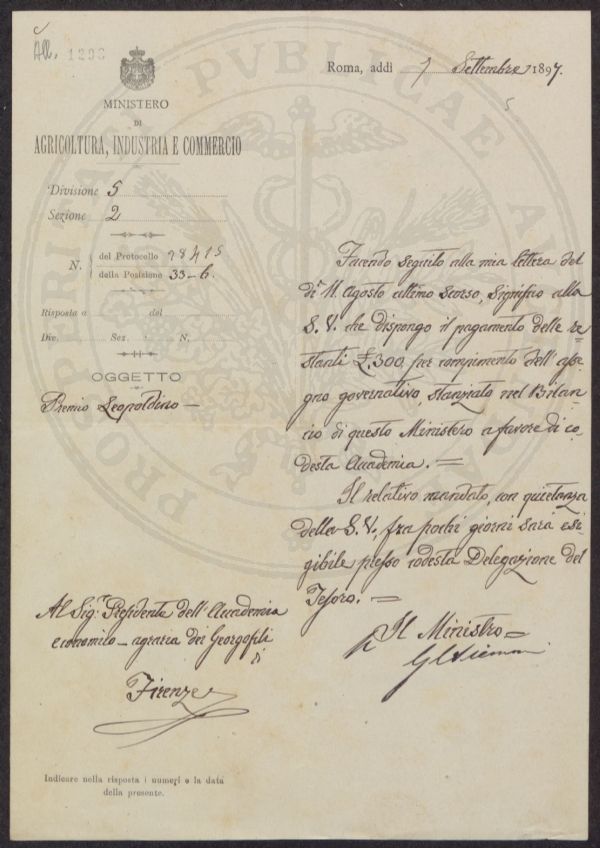 All. 1293
Roma, addì 7 Settembre 1897.
5
MINISTERO
DI
AGRICOLTURA, INDUSTRIA E COMMERCIO
Divisione 5
Sezione 2
N. del Protocollo 28415
della Posizione 33-6.
Risposta a del
Div. Sez. N.
OGGETTO
Premio Leopoldino —
Facendo seguito alla mia lettera del
dì 11. Agosto ultimo scorso, significo alla
S. V. che dispongo il pagamento delle re-
stanti £. 300. per compimento dell' asse-
gno governativo stanziato nel Bilan-
cio di questo Ministero a favore di co-
desta Accademia. =
Il relativo mandato, con quietanza
della S. V., fra pochi giorni sarà esi-
gibile presso codesta Delegazione del
Tesoro. =
Il Ministro =
Al Sig.r Presidente dell' Accademia
economico-agraria dei Georgofili
di
Firenze
Indicare nella risposta i numeri e la data
della presente.
PROSPERITATI PVBLICAE